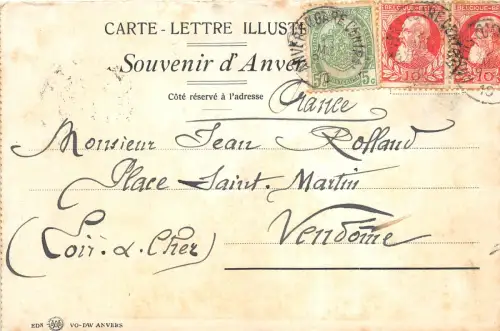 CARTE-LETTRE ILLUST
Souvenir d'Anver
Côté réservé à l'adresse
France
Monsieur Jean Rolland
Place Saint-Martin
Vendôme
(Loir-&-Cher)
EDN VO-DW ANVERS
5c
10
10